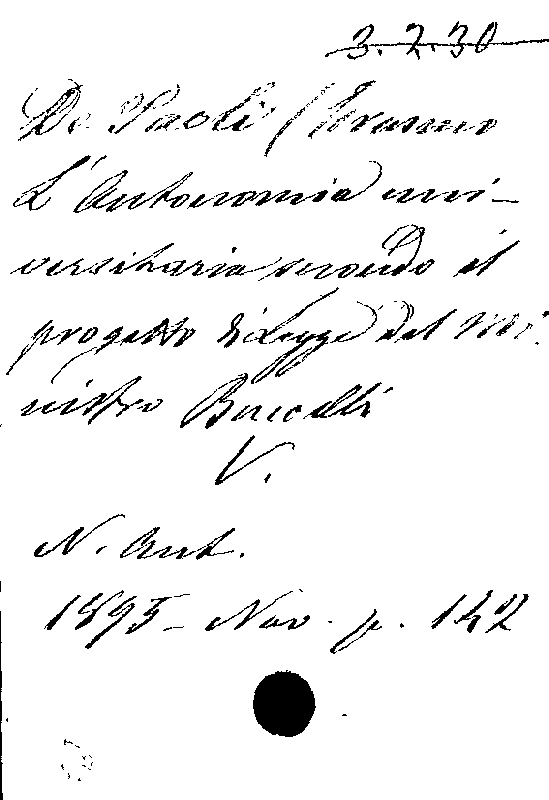 3.2.30
De Paoli (Erasmo
L'Autonomia uni-
versitaria secondo il
progetto di Legge del Mi-
nistro Baccelli
V.
N. Ant.
1895 - Nov. p. 142